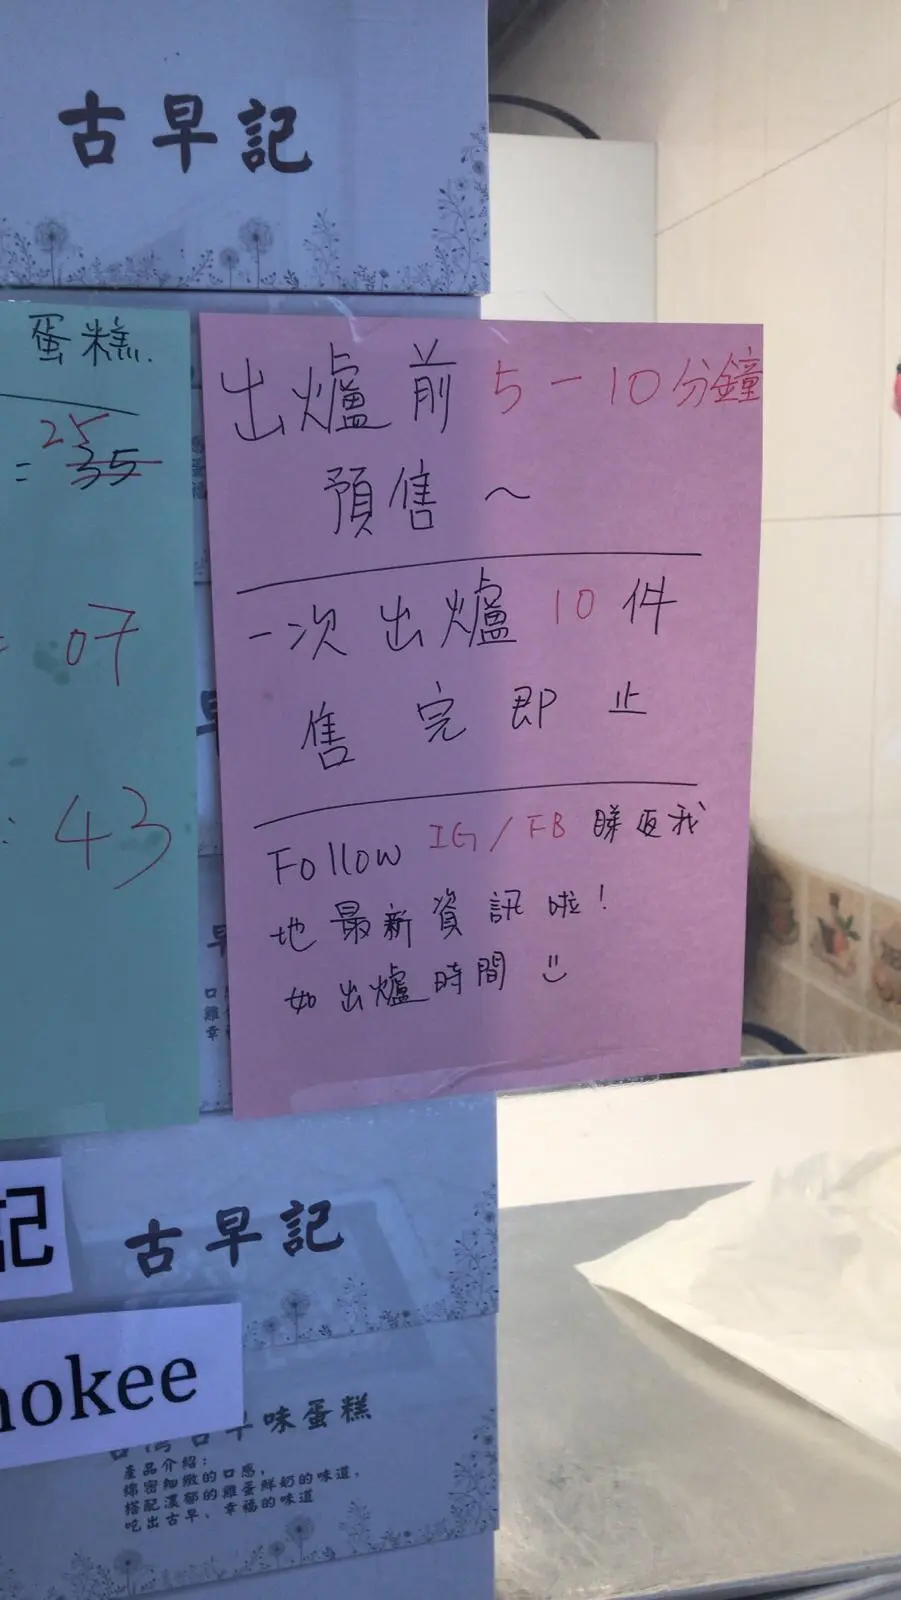 古早記
蛋糕.
25
= 35
07
: 43
出爐前 5-10分鐘
預售~
一次出爐 10 件
售完即止
Follow IG/FB 睇返我
地最新資訊啦!
如出爐時間
記
古早記
okee
古早味蛋糕
產品介紹:
綿密細緻的口感,
搭配濃郁的雞蛋鮮奶的味道,
吃出古早、幸福的味道